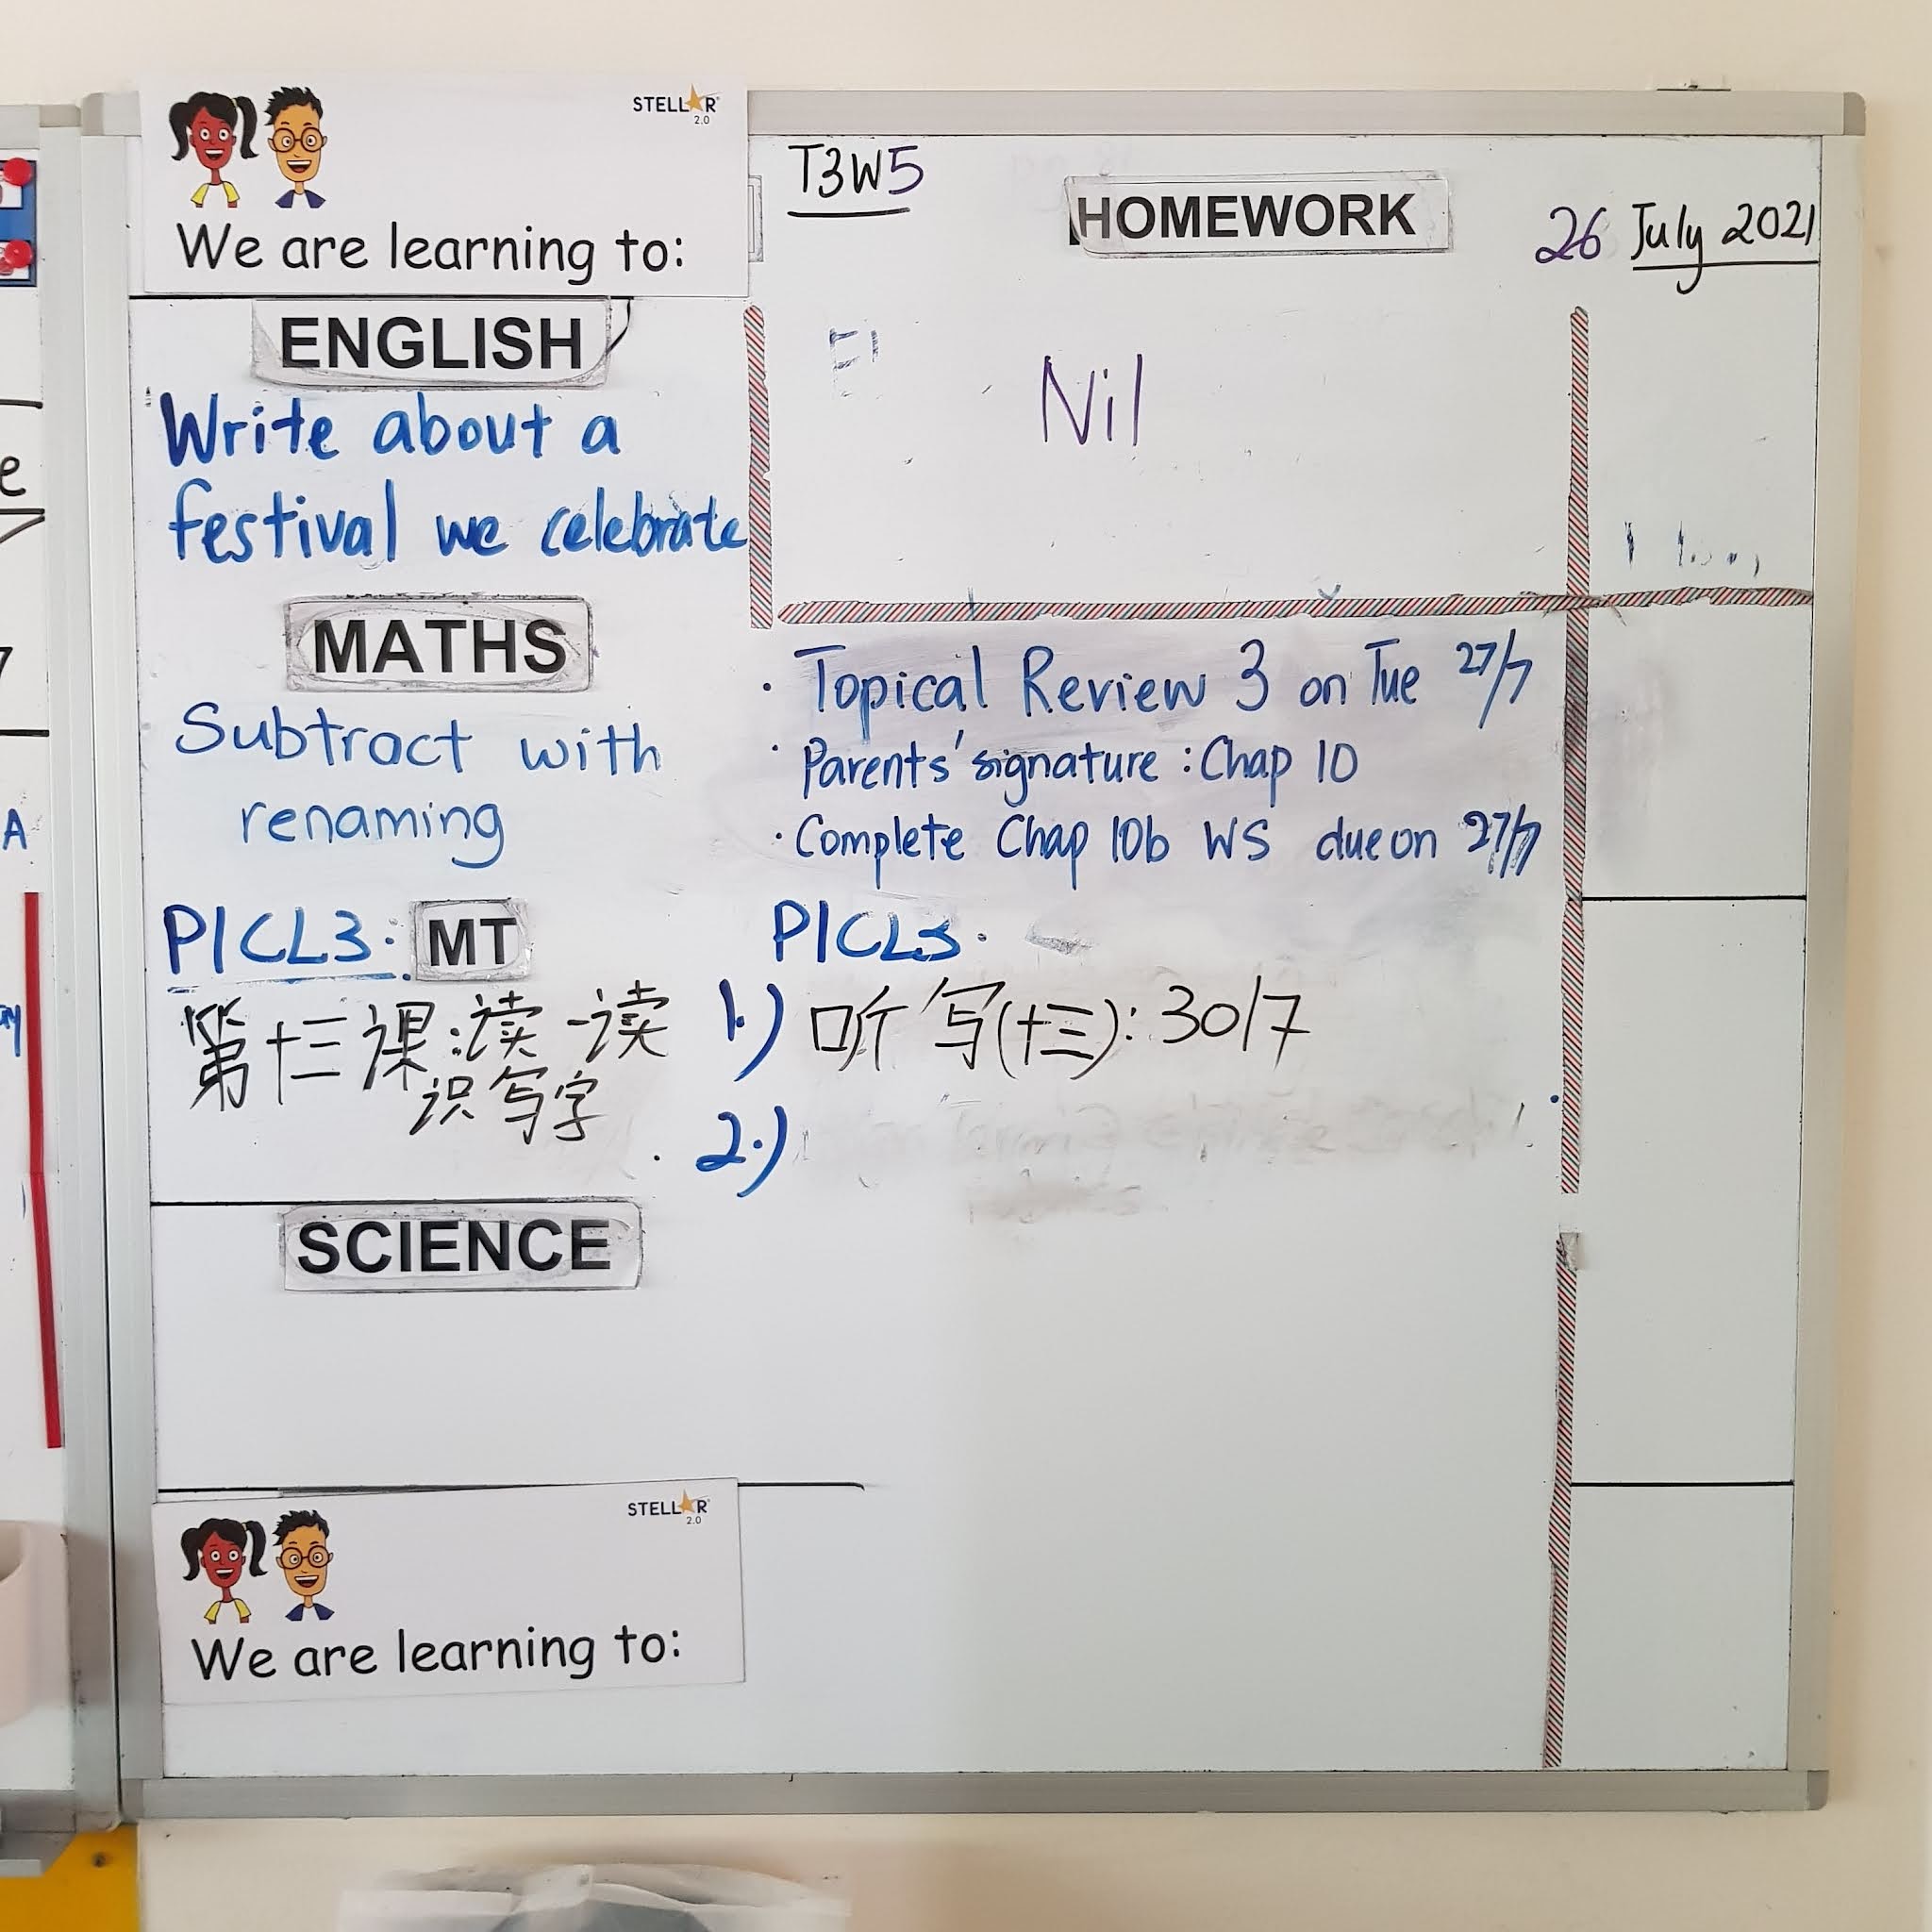 STELLAR
2.0
We are learning to:
T3W5
HOMEWORK
26 July 2021
ENGLISH
Write about a
festival we celebrate
Nil
MATHS
Subtract with
renaming
· Topical Review 3 on Tue 27/7
· Parents' signature : Chap 10
· Complete Chap 10b WS due on 27/7
P1CL3: MT
第十三课:读一读
识写字
P1CL3.
1.) 听写(十三): 30/7
2.)
SCIENCE
STELLAR
2.0
We are learning to:
e
7
A